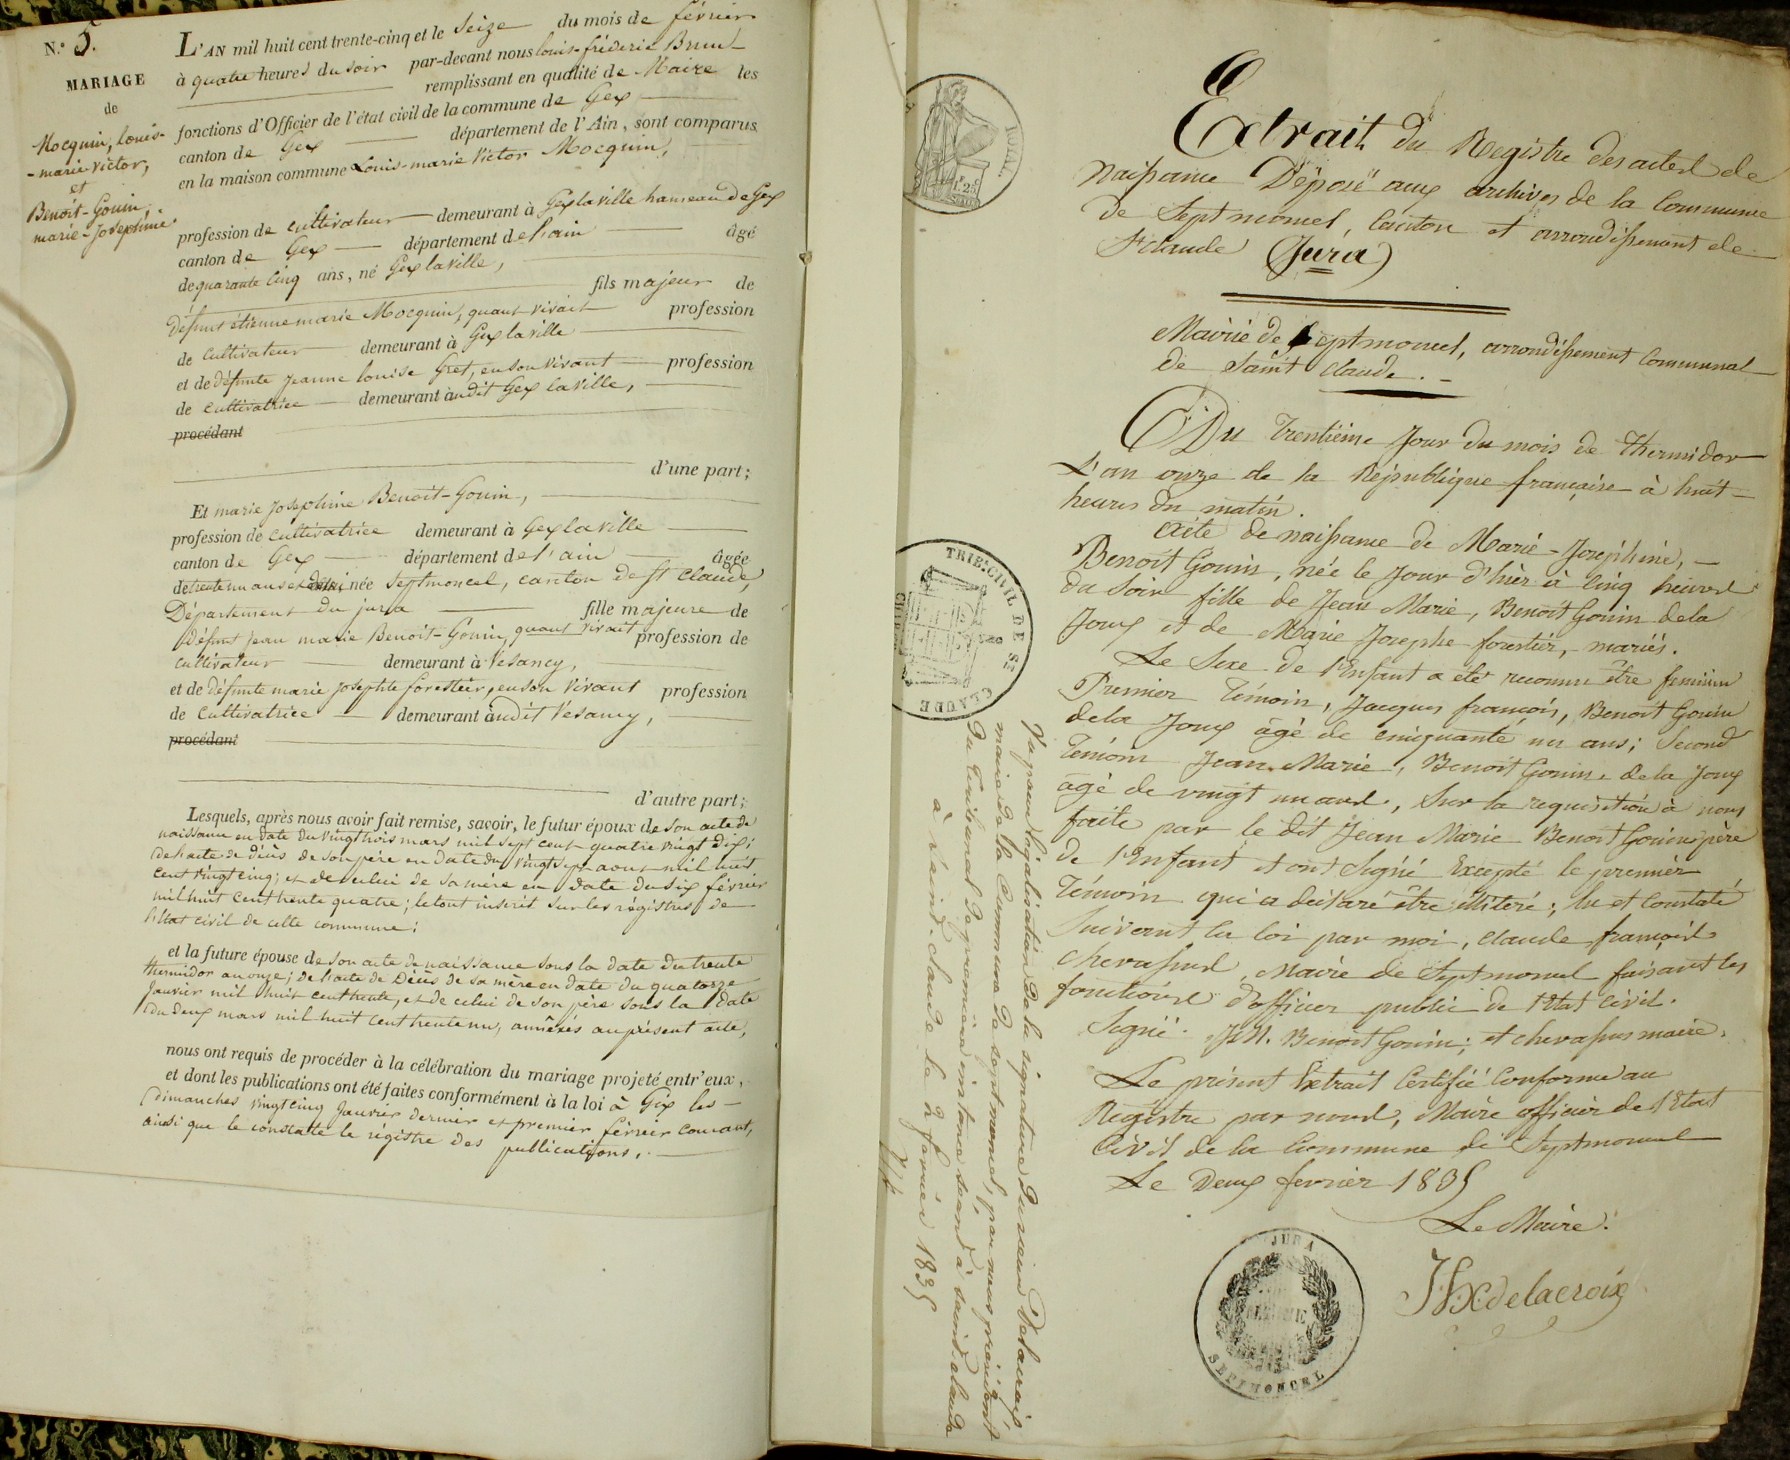 N.° 5.
MARIAGE
de
Mocquin, louis-
-marie victor,
et
Benoit-Gouin,
marie-Joséphine
L'AN mil huit cent trente-cinq et le Seize du mois de février
à quatre heures du soir par-devant nous louis-fréderic Brun
remplissant en qualité de Maire les
fonctions d'Officier de l'état civil de la commune de Gex
canton de Gex département de l'Ain, sont comparus
en la maison commune Louis-marie Victor Mocquin,
profession de cultivateur demeurant à Gex la ville hameau de Gex
canton de Gex département de l'ain âgé
de quarante cinq ans, né Gex la ville,
fils majeur de
défunt étienne marie Mocquin, quant vivait profession
de cultivateur demeurant à Gex la ville
et de défunte Jeanne louise Gret, en son vivant profession
de cultivatrice demeurant audit Gex la ville,
procédant
d'une part;
Et marie Joséphine Benoit-Gouin,
profession de cultivatrice demeurant à Gex la ville
canton de Gex département de l'ain âgée
de trente un ans et demi, née Septmoncel, canton de St Claude,
Département du jura fille majeure de
défunt jean marie Benoit-Gouin, quant vivait profession de
cultivateur demeurant à Vésancy,
et de défunte marie Josephte forestier, en son vivant profession
de cultivatrice demeurant audit Vésancy,
procédant
d'autre part;
Lesquels, après nous avoir fait remise, savoir, le futur époux de son acte de
naissance en date du vingt trois mars mil sept cent quatre vingt dix;
de l'acte de décès de son père en date du vingt sept aout mil huit
cent vingt cinq; et de celui de sa mère en date du six février
mil huit cent trente quatre; le tout inscrit sur les régistres de
l'état civil de cette commune;
et la future épouse de son acte de naissance sous la date du trente
thermidor an onze; de l'acte de Décès de sa mère en date du quatorze
Janvier mil huit cent trente, et de celui de son père sous la date
du deux mars mil huit cent trente un, annéxés au présent acte,
nous ont requis de procéder à la célébration du mariage projeté entr'eux,
et dont les publications ont été faites conformément à la loi à Gex les
dimanches vingt cinq Janvier dernier et premier février courant,
ainsi que le constatte le régistre des publications.
Extrait du Registre des actes de
Naissance Déposé aux archives de la Commune
de Septmoncel, Canton et arrondissement de
St Claude (Jura)
Mairie de Septmoncel, arrondissement Communal
de Saint Claude.
Du trentième Jour du mois de Thermidor
L'an onze de la République française à huit
heures du matin.
Acte de naissance de Marie-Joséphine,
Benoit Gouin, née le Jour d'hier à cinq heures
du soir fille de Jean Marie, Benoit Gouin de la
Joux et de Marie Josephe forestier, mariés.
Le Sexe de l'Enfant a été reconnu être feminin
Premier Témoin, Jacques françois, Benoit Gouin
de la Joux âgé de cinquante un ans; Second
Témoin Jean Marie, Benoit Gouin de la Joux
agé de vingt un ans, Sur la requisition à nous
faite par le dit Jean Marie Benoit Gouin père
de l'Enfant et ont Signé Excepté le premier
Témoin qui a déclaré être illiteré; lu et Constaté
Suivant la loi par moi, Claude françois
Chevassus, Maire de Septmoncel faisant les
fonctions d'officier public de l'Etat Civil.
Signé J.M. Benoit Gouin; et chevassus maire.
Le présent Extrait Certifié Conforme au
Registre par nous, Maire officier de l'Etat
Civil de la Commune de Septmoncel
Le Deux fevrier 1835
Le Maire.
Delacroix
JURA
SEPTMONCEL
TRIB. CIVIL DE ST CLAUDE
ROYAL
Vu pour légalisation de la signature du sieur Delacroix
maire de la Commune de Septmoncel, par nous président
du Tribunal de première instance séant à Saint-Claude
à Saint-Claude le 2 février 1835